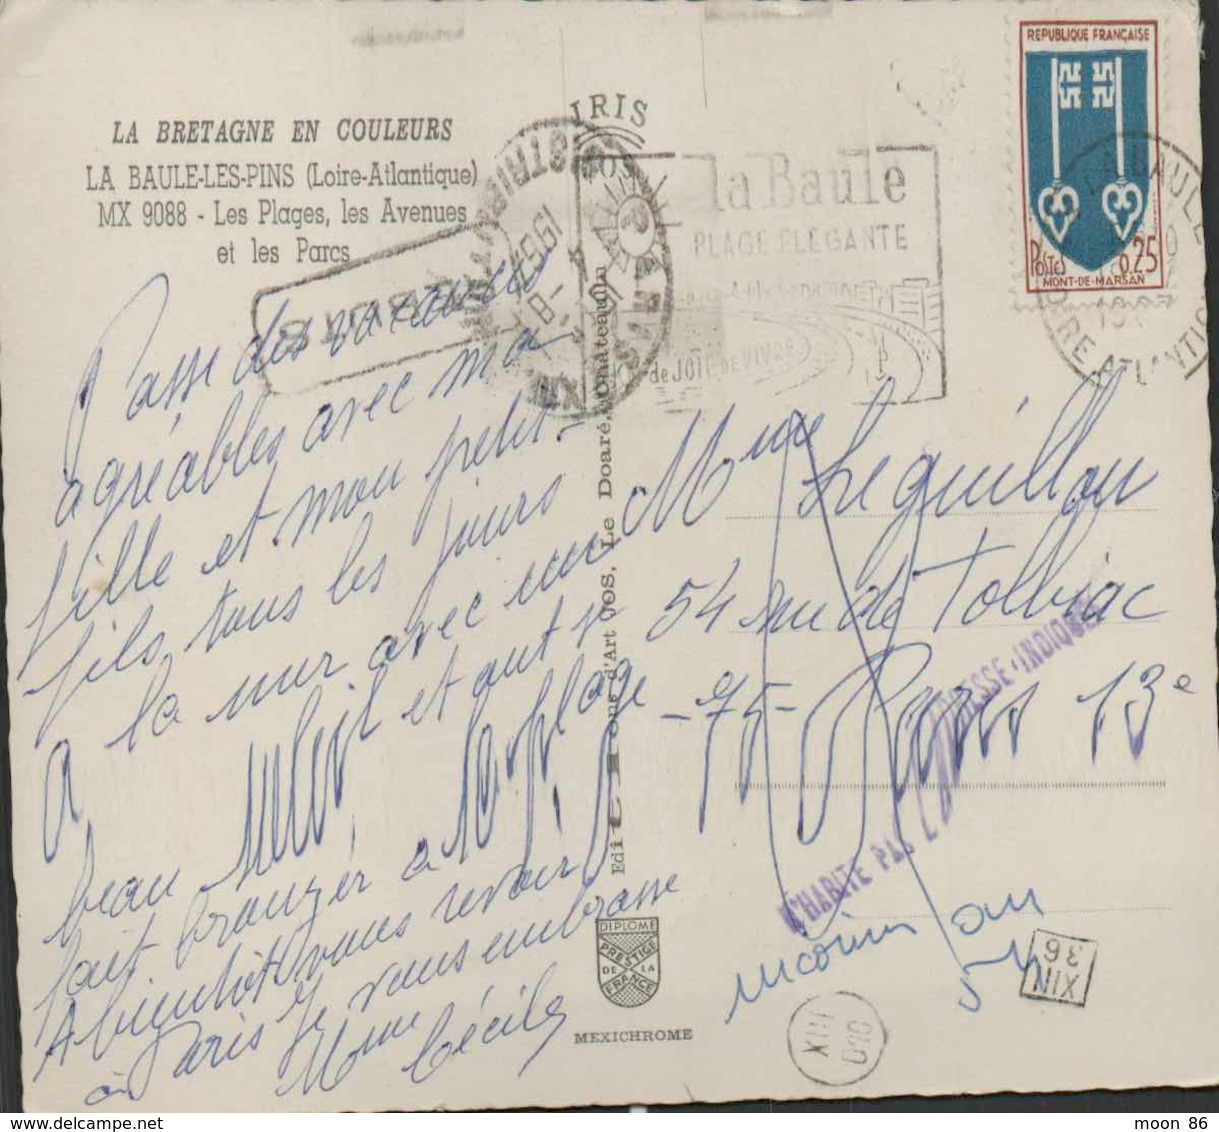 LA BRETAGNE EN COULEURS
LA BAULE-LES-PINS (Loire-Atlantique)
MX 9088 - Les Plages, les Avenues
et les Parcs
IRIS
la Baule
PLAGE ELEGANTE
de JOIE DE VIVRE
REPUBLIQUE FRANÇAISE
POSTES 0,25
MONT-DE-MARSAN
LA BAULE
LOIRE ATLANTIQUE
Passe des vacances
agréables avec ma
fille et mon petit-
fils, tous les jours
à la mer avec un
beau soleil et on se
fait bronzer à la plage
A bientôt vous revoir
à Paris Je vous embrasse
Mme Cécile
Mme Leguillou
54 rue de Tolbiac
-75- Paris 13e
N'HABITE PAS L'ADRESSE INDIQUEE
inconnu au
54
XIII
36
XIII
DIPLOME
PRESTIGE
DE LA
FRANCE
MEXICHROME
d'Art JOS, Le Doaré, Châteaulin
moon 86